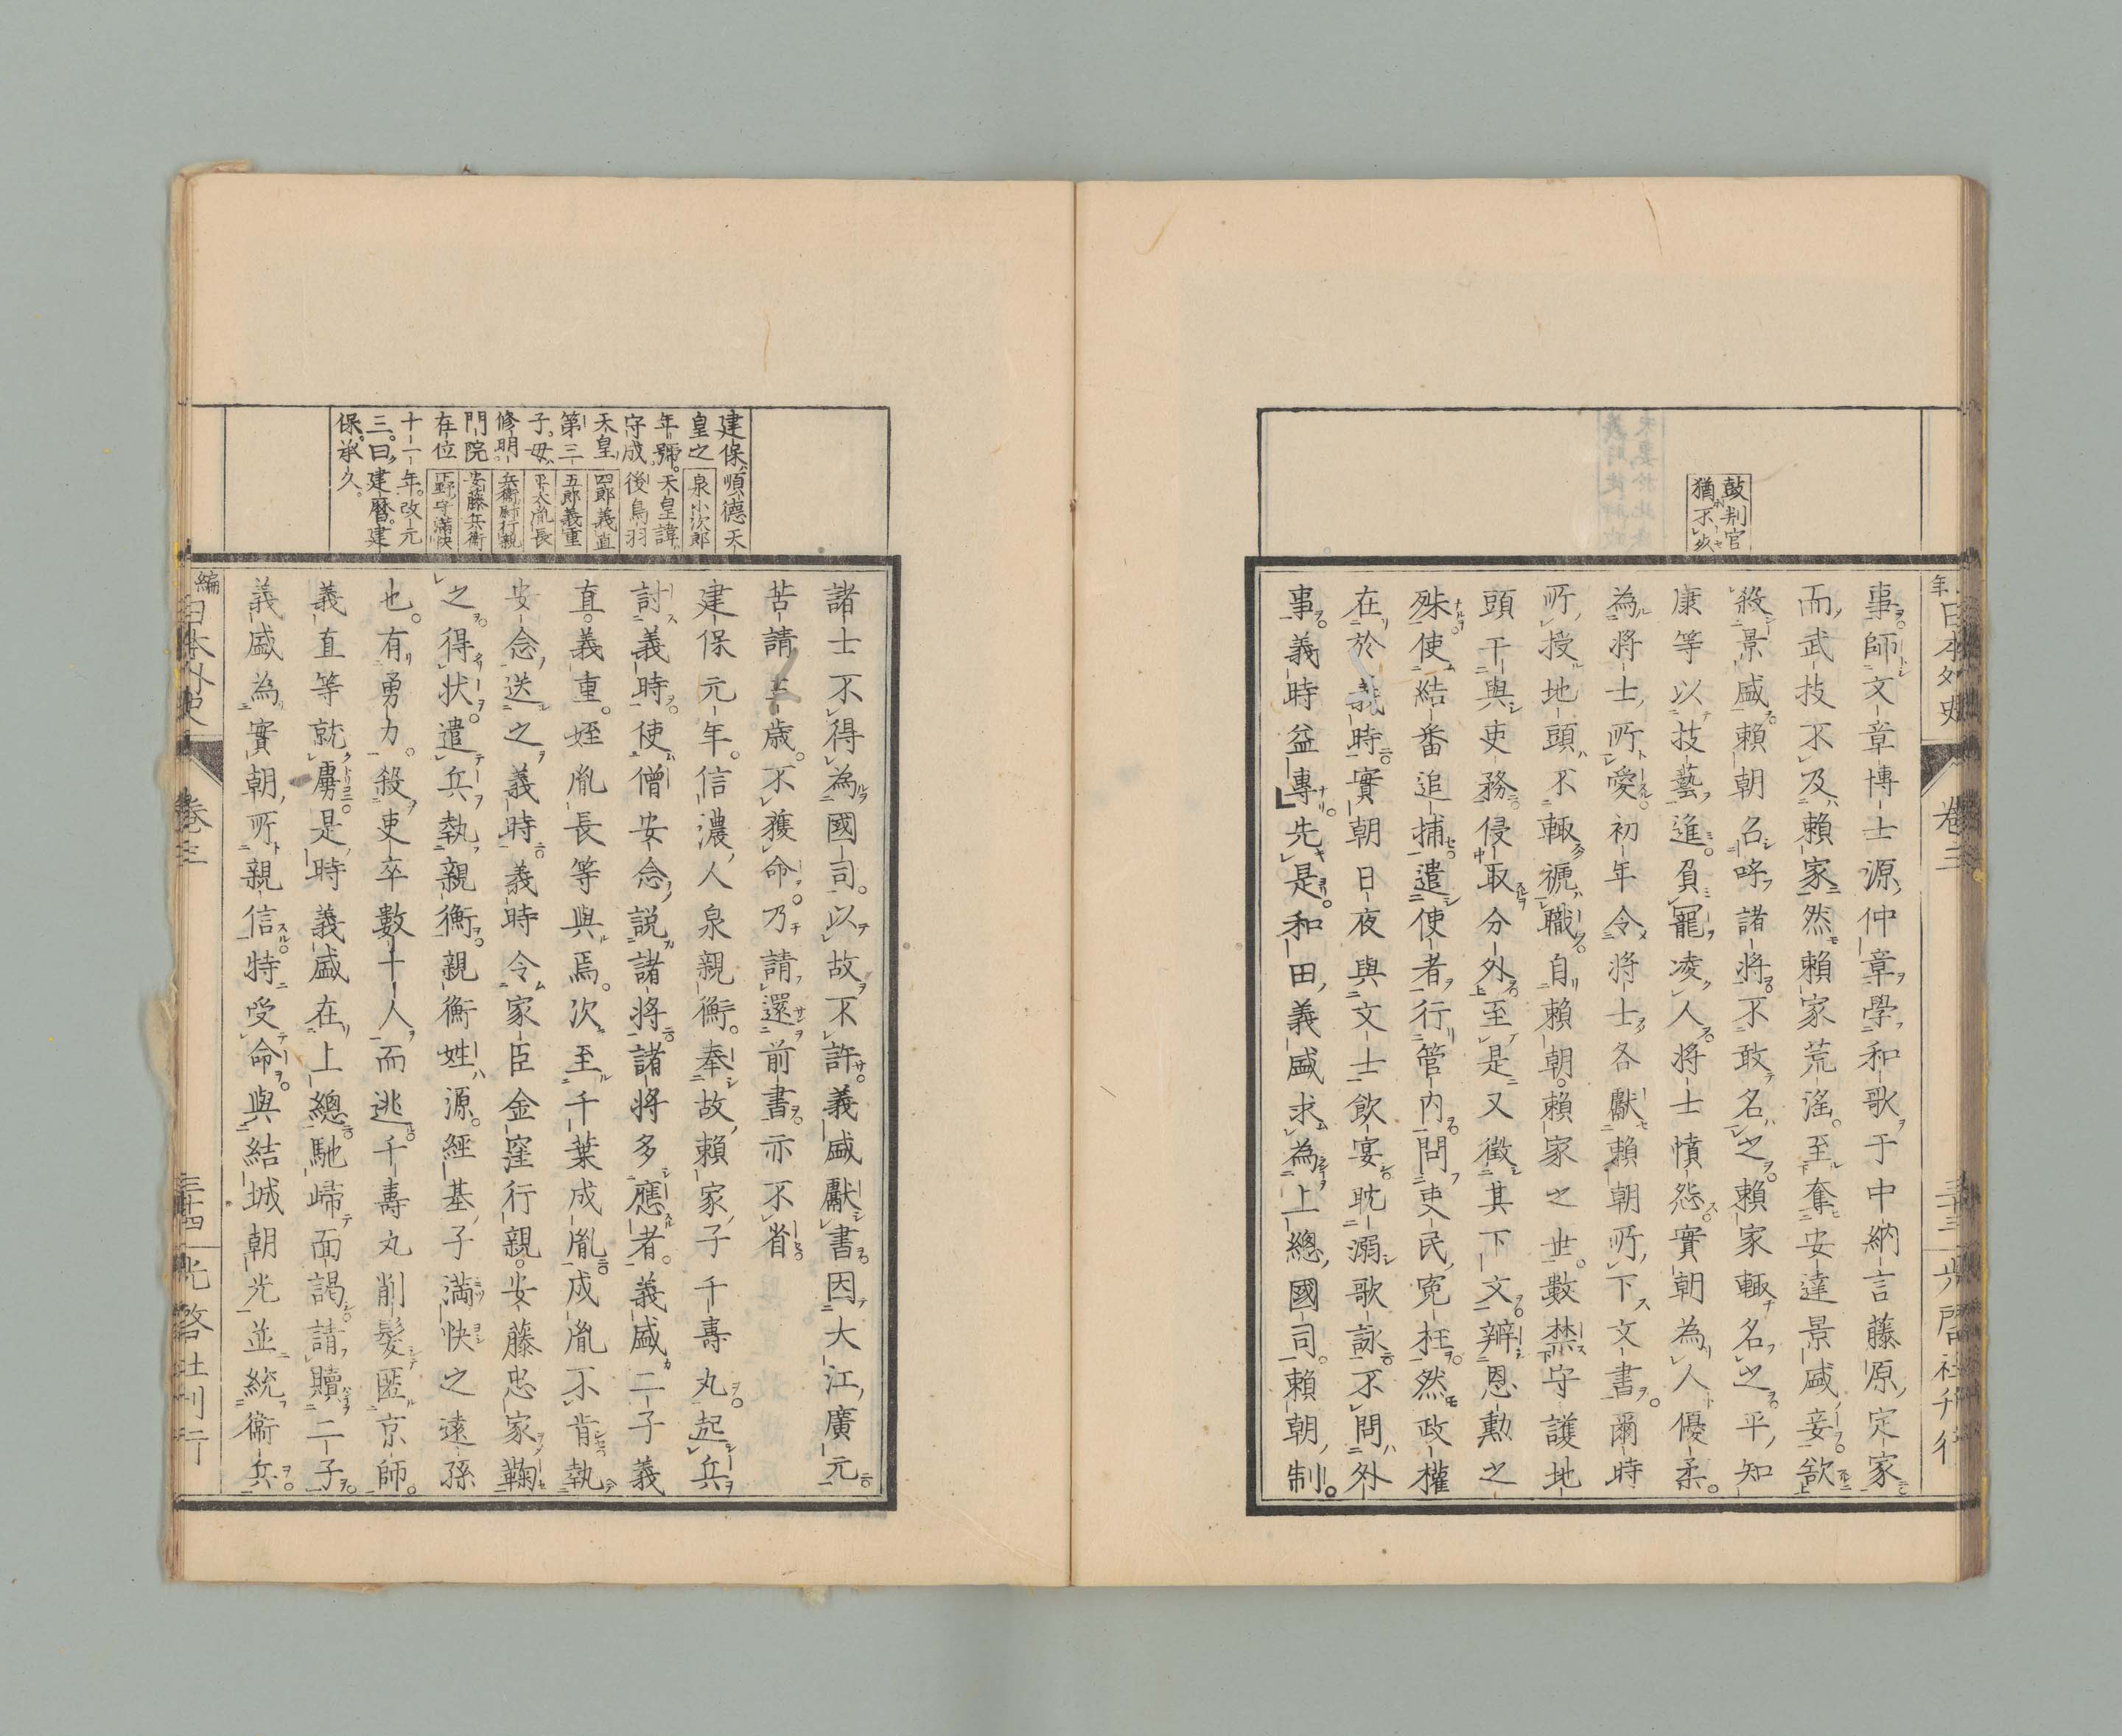 鼓判官
猶不
事師文章博士源仲章學和歌于中納言藤原定家
而武技不及賴家然賴家荒淫至奪安達景盛妾欲
殺景盛賴朝名呼諸將不敢名之賴家輒名之平知
康等以技藝進負寵凌人將士憤怨實朝為人優柔
為將士所愛初年令將士各獻賴朝所下文書爾時
所授地頭不輒褫職自賴朝賴家之世數禁守護地
頭干與吏務侵取分外至是又徵其下文辨恩勳之
殊使結番追捕遣使者行管內問吏民冤枉然政權
在於義時實朝日夜與文士飲宴耽溺歌詠不問外
事義時益專先是和田義盛求為上總國司賴朝制
日本外史 卷三 三十三 光啓社刊行
建保順德天
皇之
年號天皇諱
守成後鳥羽
天皇
第三
子母
修明
門院
在位
十一年改元
三曰建曆建
保承久
泉小次郎
四郎義直
五郎義重
平太胤長
兵衞尉行親
安藤兵衞
諸士不得為國司以故不許義盛獻書因大江廣元
苦請 歲不獲命乃請還前書亦不省
建保元年信濃人泉親衡奉故賴家子千壽丸起兵
討義時使僧安念說諸將諸將多應者義盛二子義
直義重姪胤長等與焉次至千葉成胤成胤不肯執
安念送之義時義時令家臣金窪行親安藤忠家鞠
之得狀遣兵執親衡親衡姓源經基子滿快之遠孫
也有勇力殺吏卒數十人而逃千壽丸削髮匿京師
義直等就虜是時義盛在上總馳歸面謁請贖二子
義盛為實朝所親信特受命與結城朝光並統衞兵
編 日本外史 卷三 三十四 光啓社刊行